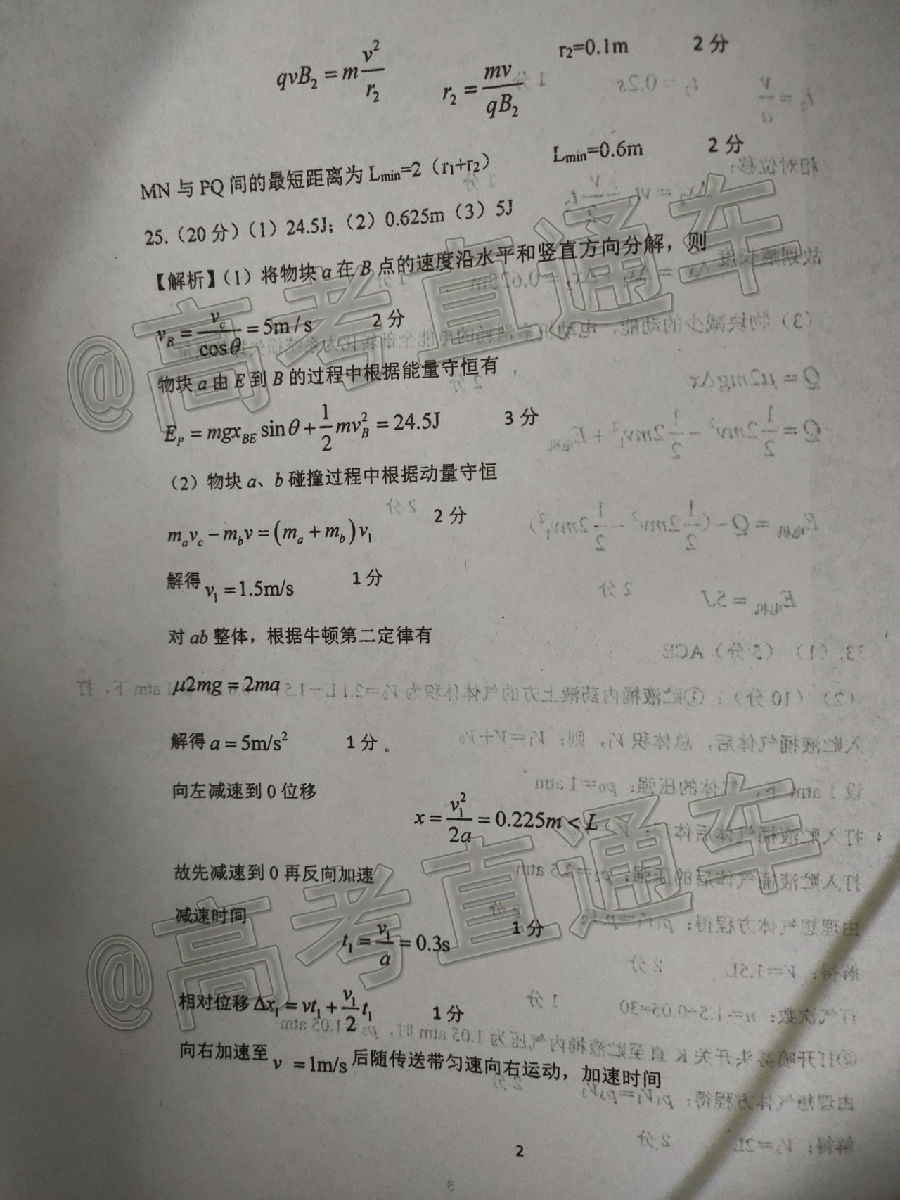 qvB₂ = m v²/r₂    r₂ = mv/qB₂    r2=0.1m    2 分
MN 与 PQ 间的最短距离为 Lmin=2（r1+r2）    Lmin=0.6m    2 分
25.（20 分）（1）24.5J;（2）0.625m（3）5J
【解析】（1）将物块 a 在 B 点的速度沿水平和竖直方向分解，则
v_B = v_c/cosθ = 5m/s    2 分
物块 a 由 E 到 B 的过程中根据能量守恒有
E_P = mgx_BE sinθ + 1/2 mv_B² = 24.5J    3 分
（2）物块 a、b 碰撞过程中根据动量守恒
m_a v_c − m_b v = (m_a + m_b) v₁    2 分
解得 v₁ = 1.5m/s    1 分
对 ab 整体，根据牛顿第二定律有
μ2mg = 2ma
解得 a = 5m/s²    1 分。
向左减速到 0 位移
x = v₁²/2a = 0.225m < L
故先减速到 0 再反向加速
减速时间
t₁ = v₁/a = 0.3s    1 分
相对位移 Δx₁ = vt₁ + v₁/2 t₁    1 分
向右加速至 v = 1m/s 后随传送带匀速向右运动，加速时间
2
@高考直通车
@高考直通车